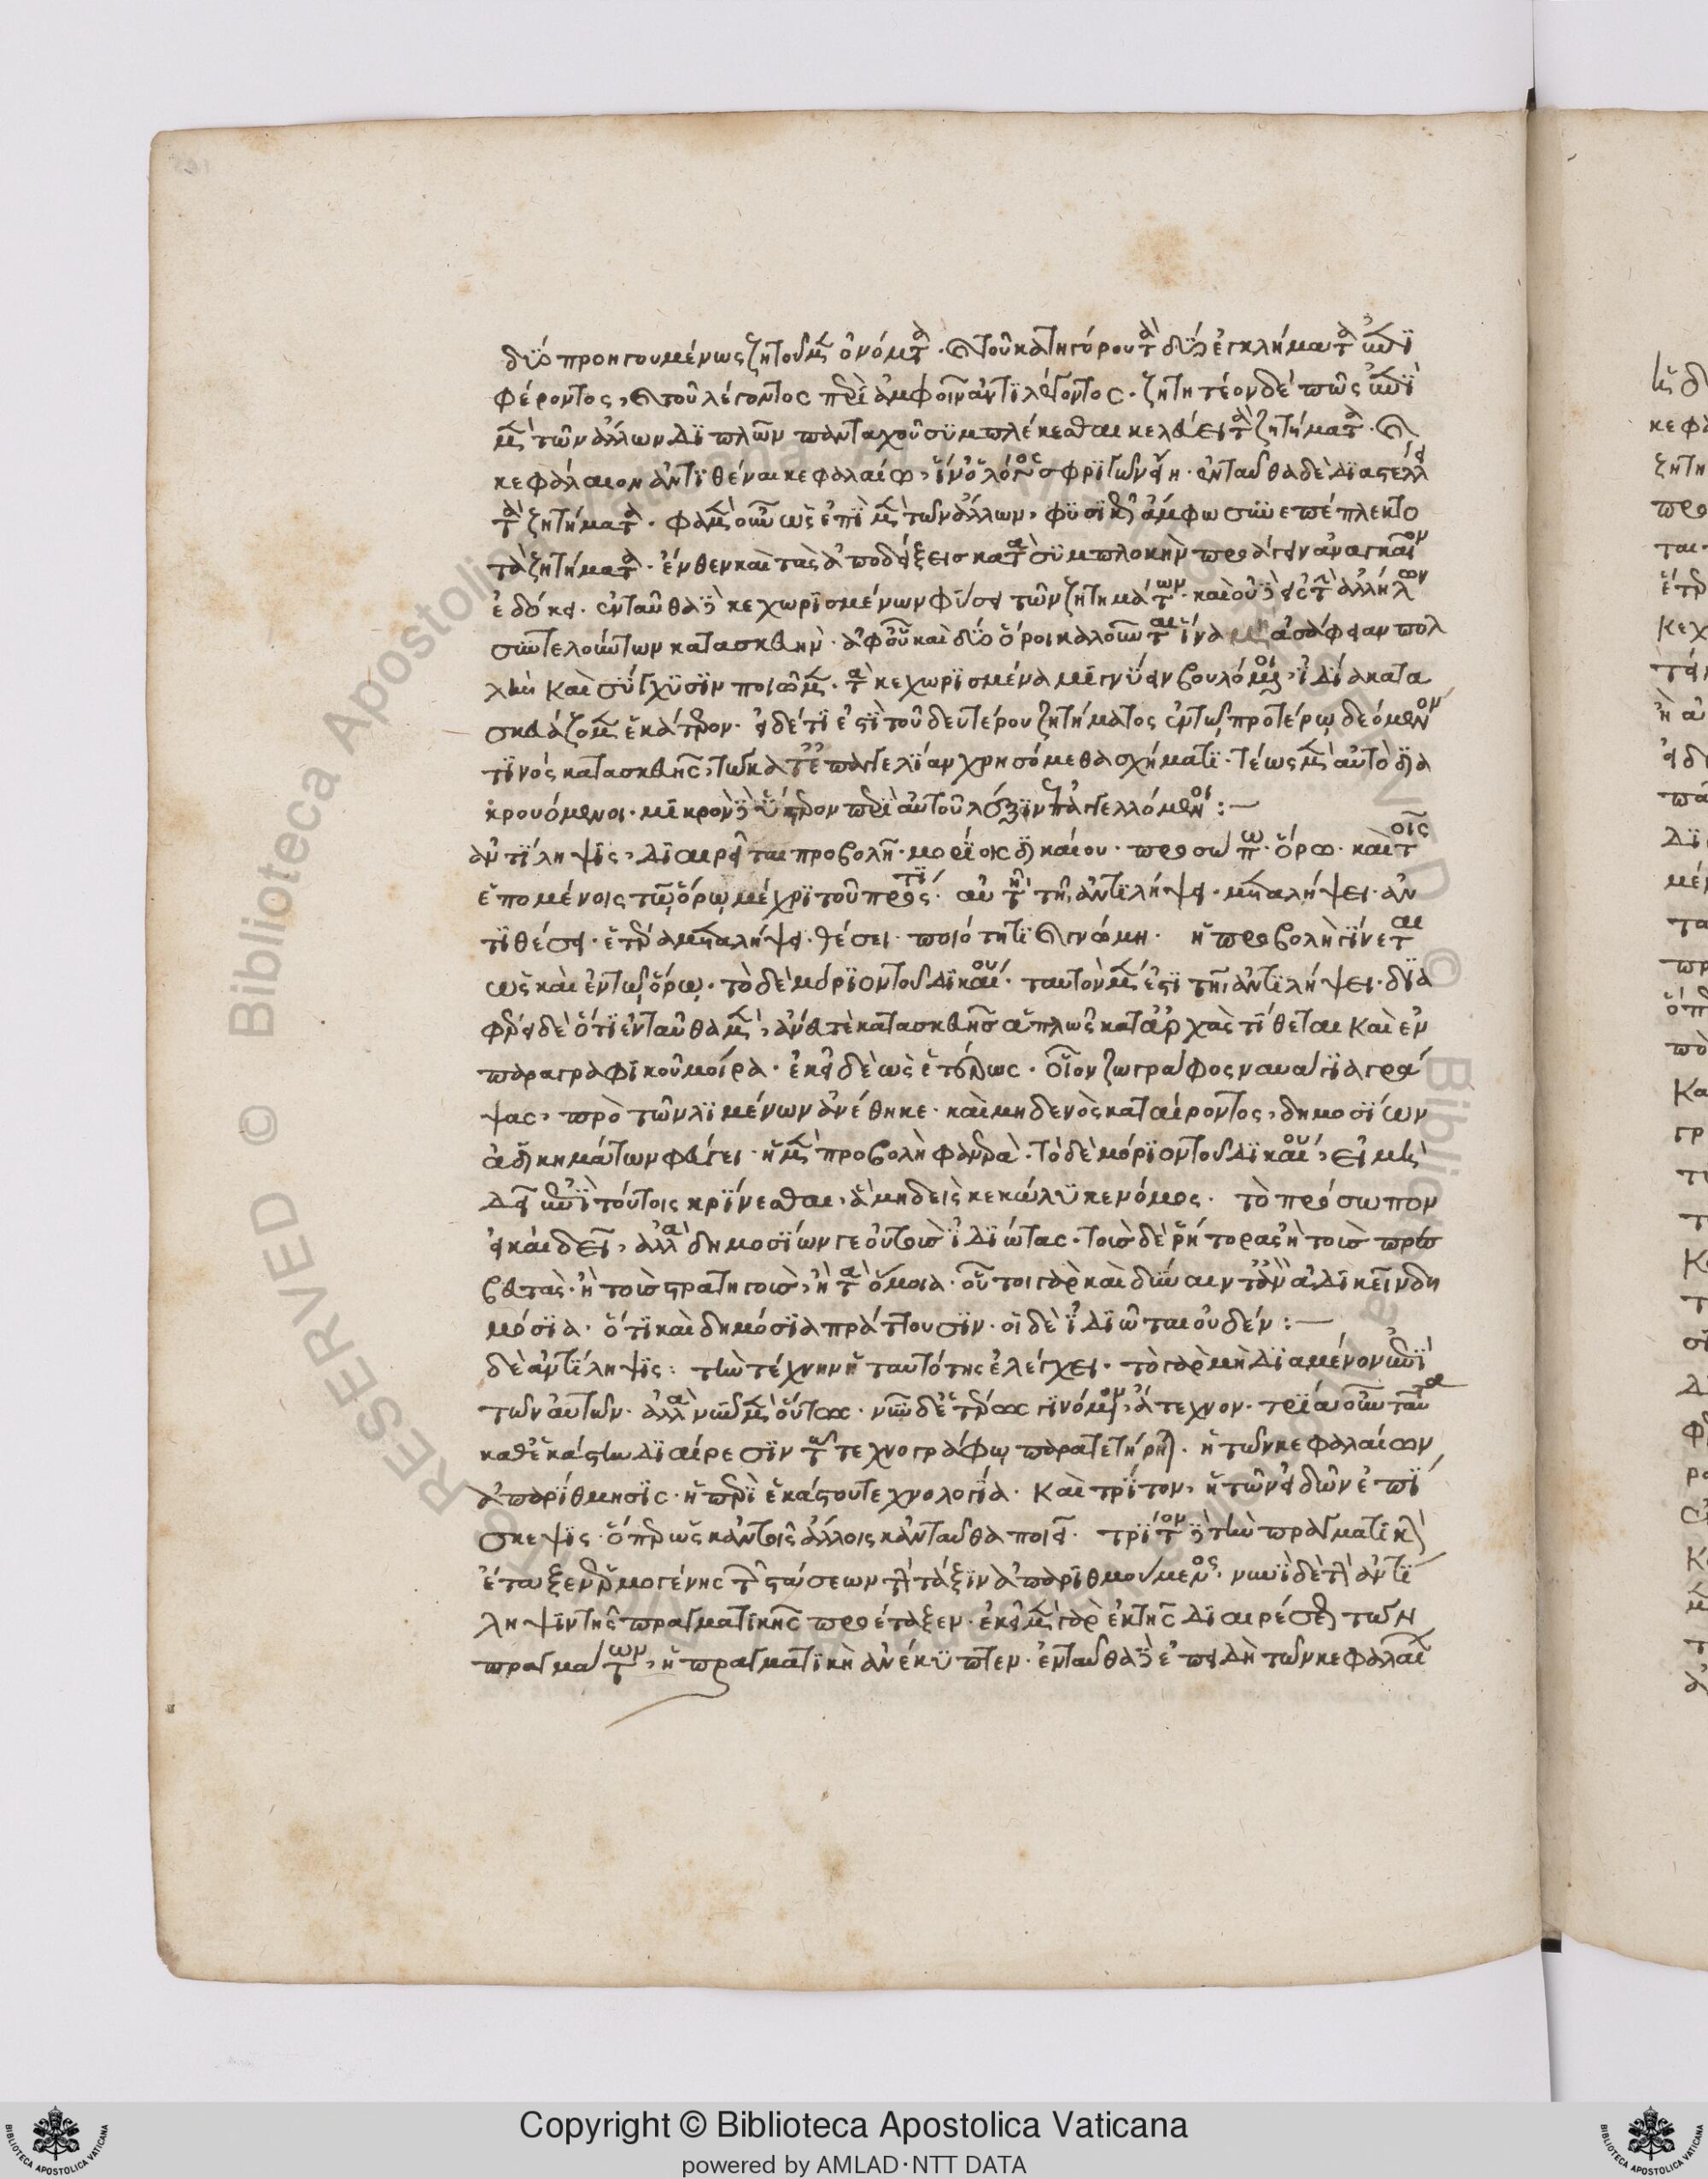 δύο προηγουμένως ζητοῦμεν ὀνόματα. καὶ τοῦ κατηγόρου τὰ δύο ἐγκλήματα ἐπι
φέροντος, καὶ τοῦ λέγοντος περὶ ἀμφοῖν ἀντιλέγοντος. ζητητέον δὲ πῶς ἐπὶ
μὲν τῶν ἄλλων διπλῶν πανταχοῦ συμπλέκεσθαι κελεύει τὰ ζητήματα. καὶ
κεφάλαιον ἀντιθέναι κεφαλαίῳ, ἐνταῦθα δὲ διαστέλλει
τὰ ζητήματα. φαμὲν οὖν ὡς ἐπὶ μὲν τῶν ἄλλων, φυσικῶς ἄμφω συνεπέπλεκτο
τὰ ζητήματα. ἔνθεν καὶ τὰς ἀποδείξεις κατὰ συμπλοκὴν προάγειν ἀναγκαῖον
ἐδόκει. ἐνταῦθα δὲ κεχωρισμένων φύσει τῶν ζητημάτων. καὶ οὐδὲ εἰς τὴν ἀλλήλων
συντελούντων κατασκευήν. ἀφ' οὗ καὶ δύο ὅροι καλοῦνται ἵνα μὴ ἀσάφειαν πολ
λὴν καὶ σύγχυσιν ποιῶμεν. τὰ κεχωρισμένα μιγνύειν βουλόμενοι, ἰδίᾳ κατα
σκευάζομεν ἑκάτερον. εἰ δέ τι ἐστὶ τοῦ δευτέρου ζητήματος ἐν τῷ προτέρῳ δεόμενον
τινὸς κατασκευῆς, τῷ κατ' ἐπαγγελίαν χρησόμεθα σχήματι. τέως μὲν αὐτὸ δια
κρουόμενοι. μικρὸν δὲ ὕστερον περὶ αὐτοῦ λέξειν ἐπαγγελλόμενοι :—
ἀντίληψις, διαιρεῖται προβολῇ. μορίοις δικαίου. προσώπῳ. ὅρῳ. καὶ τοῖς
ἑπομένοις τῷ ὅρῳ μέχρι τοῦ πρός τι. αὐτῇ τῇ ἀντιλήψει. μεταλήψει. ἀν
τιθέσει. ἑτέρᾳ μεταλήψει. θέσει. ποιότητι καὶ γνώμῃ. ἡ προβολὴ γίνεται
ὡς καὶ ἐν τῷ ὅρῳ. τὸ δὲ μόριον τοῦ δικαίου. ταυτὸν μέν ἐστι τῇ ἀντιλήψει. δια
φέρει δὲ ὅτι ἐνταῦθα μὲν, ἄνευ τε κατασκευῆς ἁπλῶς κατ' ἀρχὰς τίθεται καὶ ἐν
παραγραφικοῦ μοίρᾳ. ἐκεῖ δὲ ὡς ἑτέρως. οἷον ζωγράφος ναυάγια γρά
ψας, πρὸ τῶν λιμένων ἀνέθηκε. καὶ μηδενὸς καταίροντος, δημοσίων
ἀδικημάτων φεύγει. ἡ μὲν προβολὴ φανερὰ. τὸ δὲ μόριον τοῦ δικαίου, εἰ μὲν
δεῖ ἐπὶ τούτοις κρίνεσθαι, ἃ μηδεὶς κεκώλυκε νόμος. τὸ πρόσωπον
εἰ καὶ δεῖ, ἀλλὰ δημοσίων γε οὐ τοὺς ἰδιώτας. τοὺς δὲ ῥήτορας ἢ τοὺς πρέσ
βευτὰς. ἢ τοὺς στρατηγοὺς, ἢ τὰ ὅμοια. οὗτοι γὰρ καὶ δύναιντο ἂν ἀδικεῖν δη
μόσια. ὅτι καὶ δημόσια πράττουσιν. οἱ δὲ ἰδιῶται οὐδέν :—
δὲ ἀντίληψις : τὴν τέχνην ἡ ταυτότης ἐλέγχει. τὸ γὰρ μὴ διαμένον ἐπὶ
τῶν αὐτῶν. ἀλλὰ νῦν μὲν οὕτως. νῦν δὲ ἑτέρως γινόμενον, ἄτεχνον. τρία οὖν ταῦτα
καθ' ἑκάστην διαίρεσιν τῷ τεχνογράφῳ παρατετήρηται. ἡ τῶν κεφαλαίων
ἀπαρίθμησις. ἡ περὶ ἑκάστου τεχνολογία. καὶ τρίτον, ἡ τῶν εἰδῶν ἐπί
σκεψις. ὅπερ ὡς κἀν τοῖς ἄλλοις κἀνταῦθα ποιεῖ. τρίτον δὲ τὴν πραγματικὴν
ἔταξεν Ἑρμογένης τῶν στάσεων τὴν τάξιν ἀπαριθμούμενος, νυνὶ δὲ τὴν ἀντί
ληψιν τῆς πραγματικῆς προέταξεν. ἐκεῖ μὲν γὰρ ἐκ τῆς διαιρέσεως τῶν
πραγμάτων, ἡ πραγματικὴ ἀνέκυπτεν. ἐνταῦθα δὲ ἐπειδὴ τῶν κεφαλαί
Copyright © Biblioteca Apostolica Vaticana
powered by AMLAD·NTT DATA